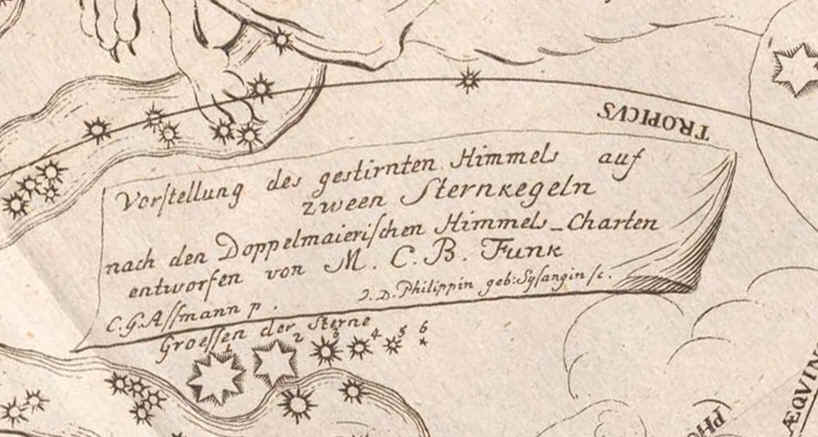 TROPICVS
Vorſtellung des geſtirnten Himmels auf
zween Sternkegeln
nach den Doppelmaieriſchen Himmels-Charten
entworfen von M. C. B. Funk
C.G.Aſſmann p. J.D.Philippin geb:Syſangin ſc.
Groeſſen der Sterne
1 2 3 4 5 6
ÆQVIN
PHO